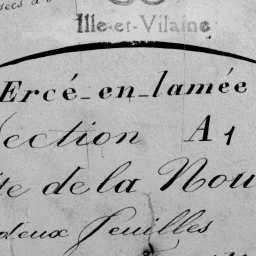 Ille-et-Vilaine
Ercé-en-lamée
ection A1
de la Nou
deux feuilles